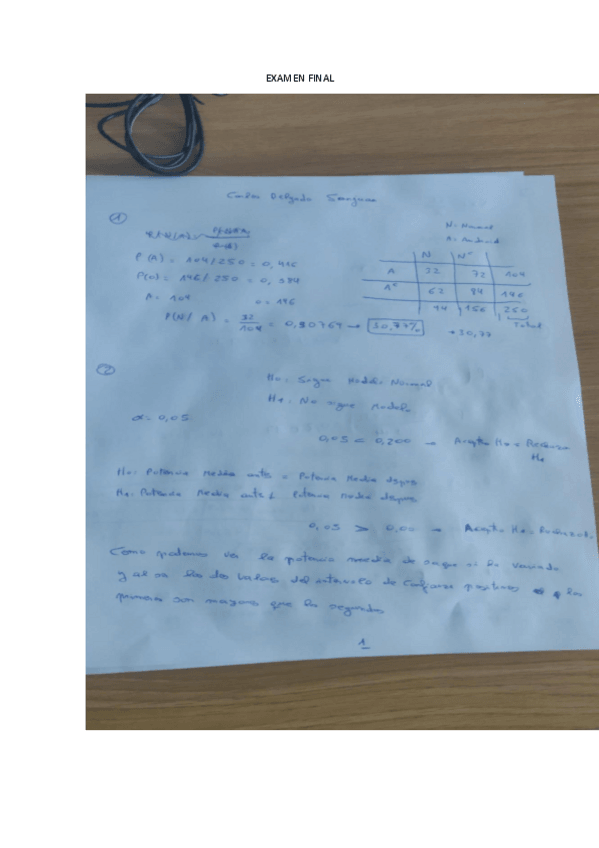 EXAMEN FINAL
Carlos Delgado
①
N = Normal
A = Android
P(A) = 104/250 = 0,416
P(o) = 146/250 = 0,584
A = 104 o = 146
P(N/A) = 32/104 = 0,30769 → 30,77%
→ 30,77
N Nᶜ
A 32 72 104
Aᶜ 62 84 146
94 156 250
Total
②
H₀: Sigue modelo Normal
H₁: No sigue modelo
α = 0,05
0,05 < 0,200 → Acepto H₀ y Rechazo
H₁
H₀: Potencia media antes = Potencia media después
H₁: Potencia media antes ≠ Potencia media después
0,05 > 0,00 → Acepto H₁ Rechazo
Como podemos ver la potencia media de saque si ha variado
y al los dos valores del intervalo de confianza positivos los
primeros son mayores que los segundos
1